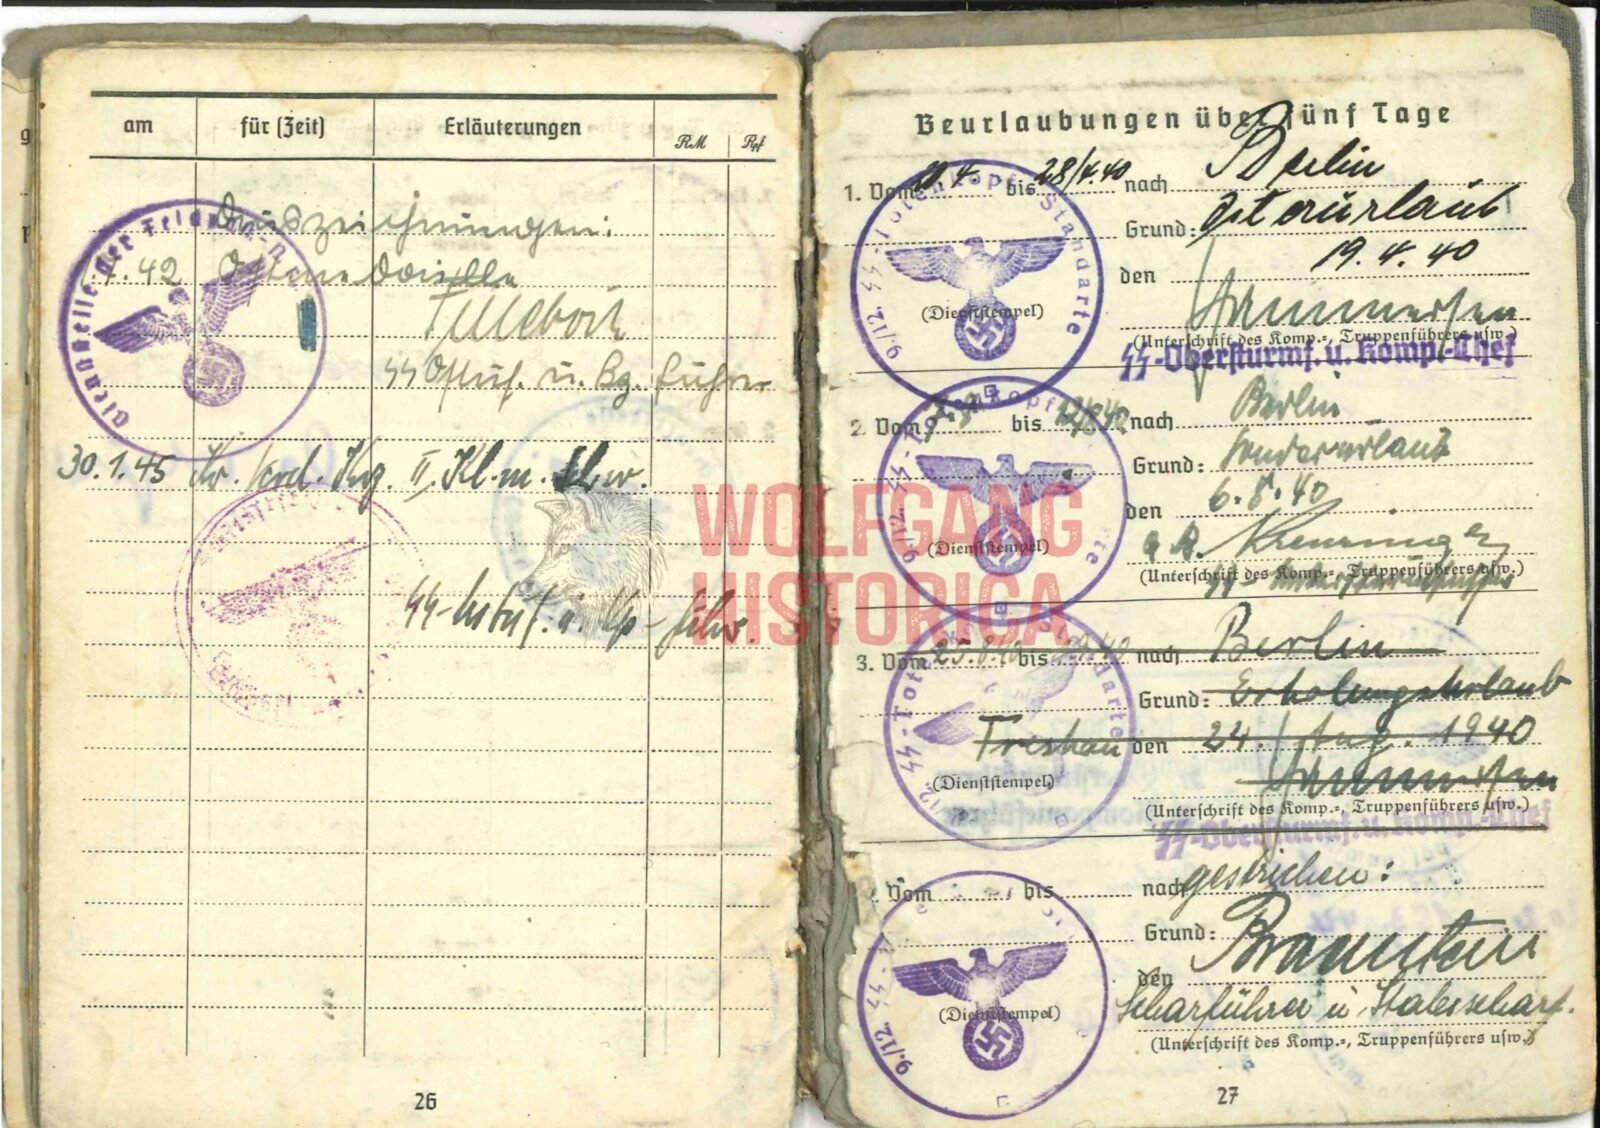 am für (Zeit) Erläuterungen RM Rpf
Auszeichnungen:
7.42 Ostmedaille
SS Ostuf. u. Kp. Führer
Dienststelle der Feldpost-n
30.1.45 Kr. Verd. Krz. II. Kl. m. Schw.
SS-Ustuf. u. Kp-führ.
26
Beurlaubungen über fünf Tage
1. Vom 4. bis 28/4.40 nach Berlin
Grund: Osterurlaub
den 19.4.40
(Dienststempel)
(Unterschrift des Komp.-, Truppenführers usw.)
SS-Obersturmf. u. Komp.-Chef
9./12. SS-Totenkopf-Standarte
2. Vom bis nach Berlin
Grund: Sonderurlaub
den 6.8.40
(Dienststempel)
(Unterschrift des Komp.-, Truppenführers usw.)
9./12. SS-Totenkopf
3. Vom 25.8.40 bis 9.40 nach Berlin
Grund: Erholungsurlaub
den 24. Aug. 1940
(Dienststempel)
(Unterschrift des Komp.-, Truppenführers usw.)
SS-Obersturmf. u. Komp.-Chef
Vom bis nach gestrichen:
Grund:
den
Scharführer u. Stabsscharf.
(Dienststempel)
(Unterschrift des Komp.-, Truppenführers usw.)
9./12. SS
27
WOLFGANG
HISTORICA